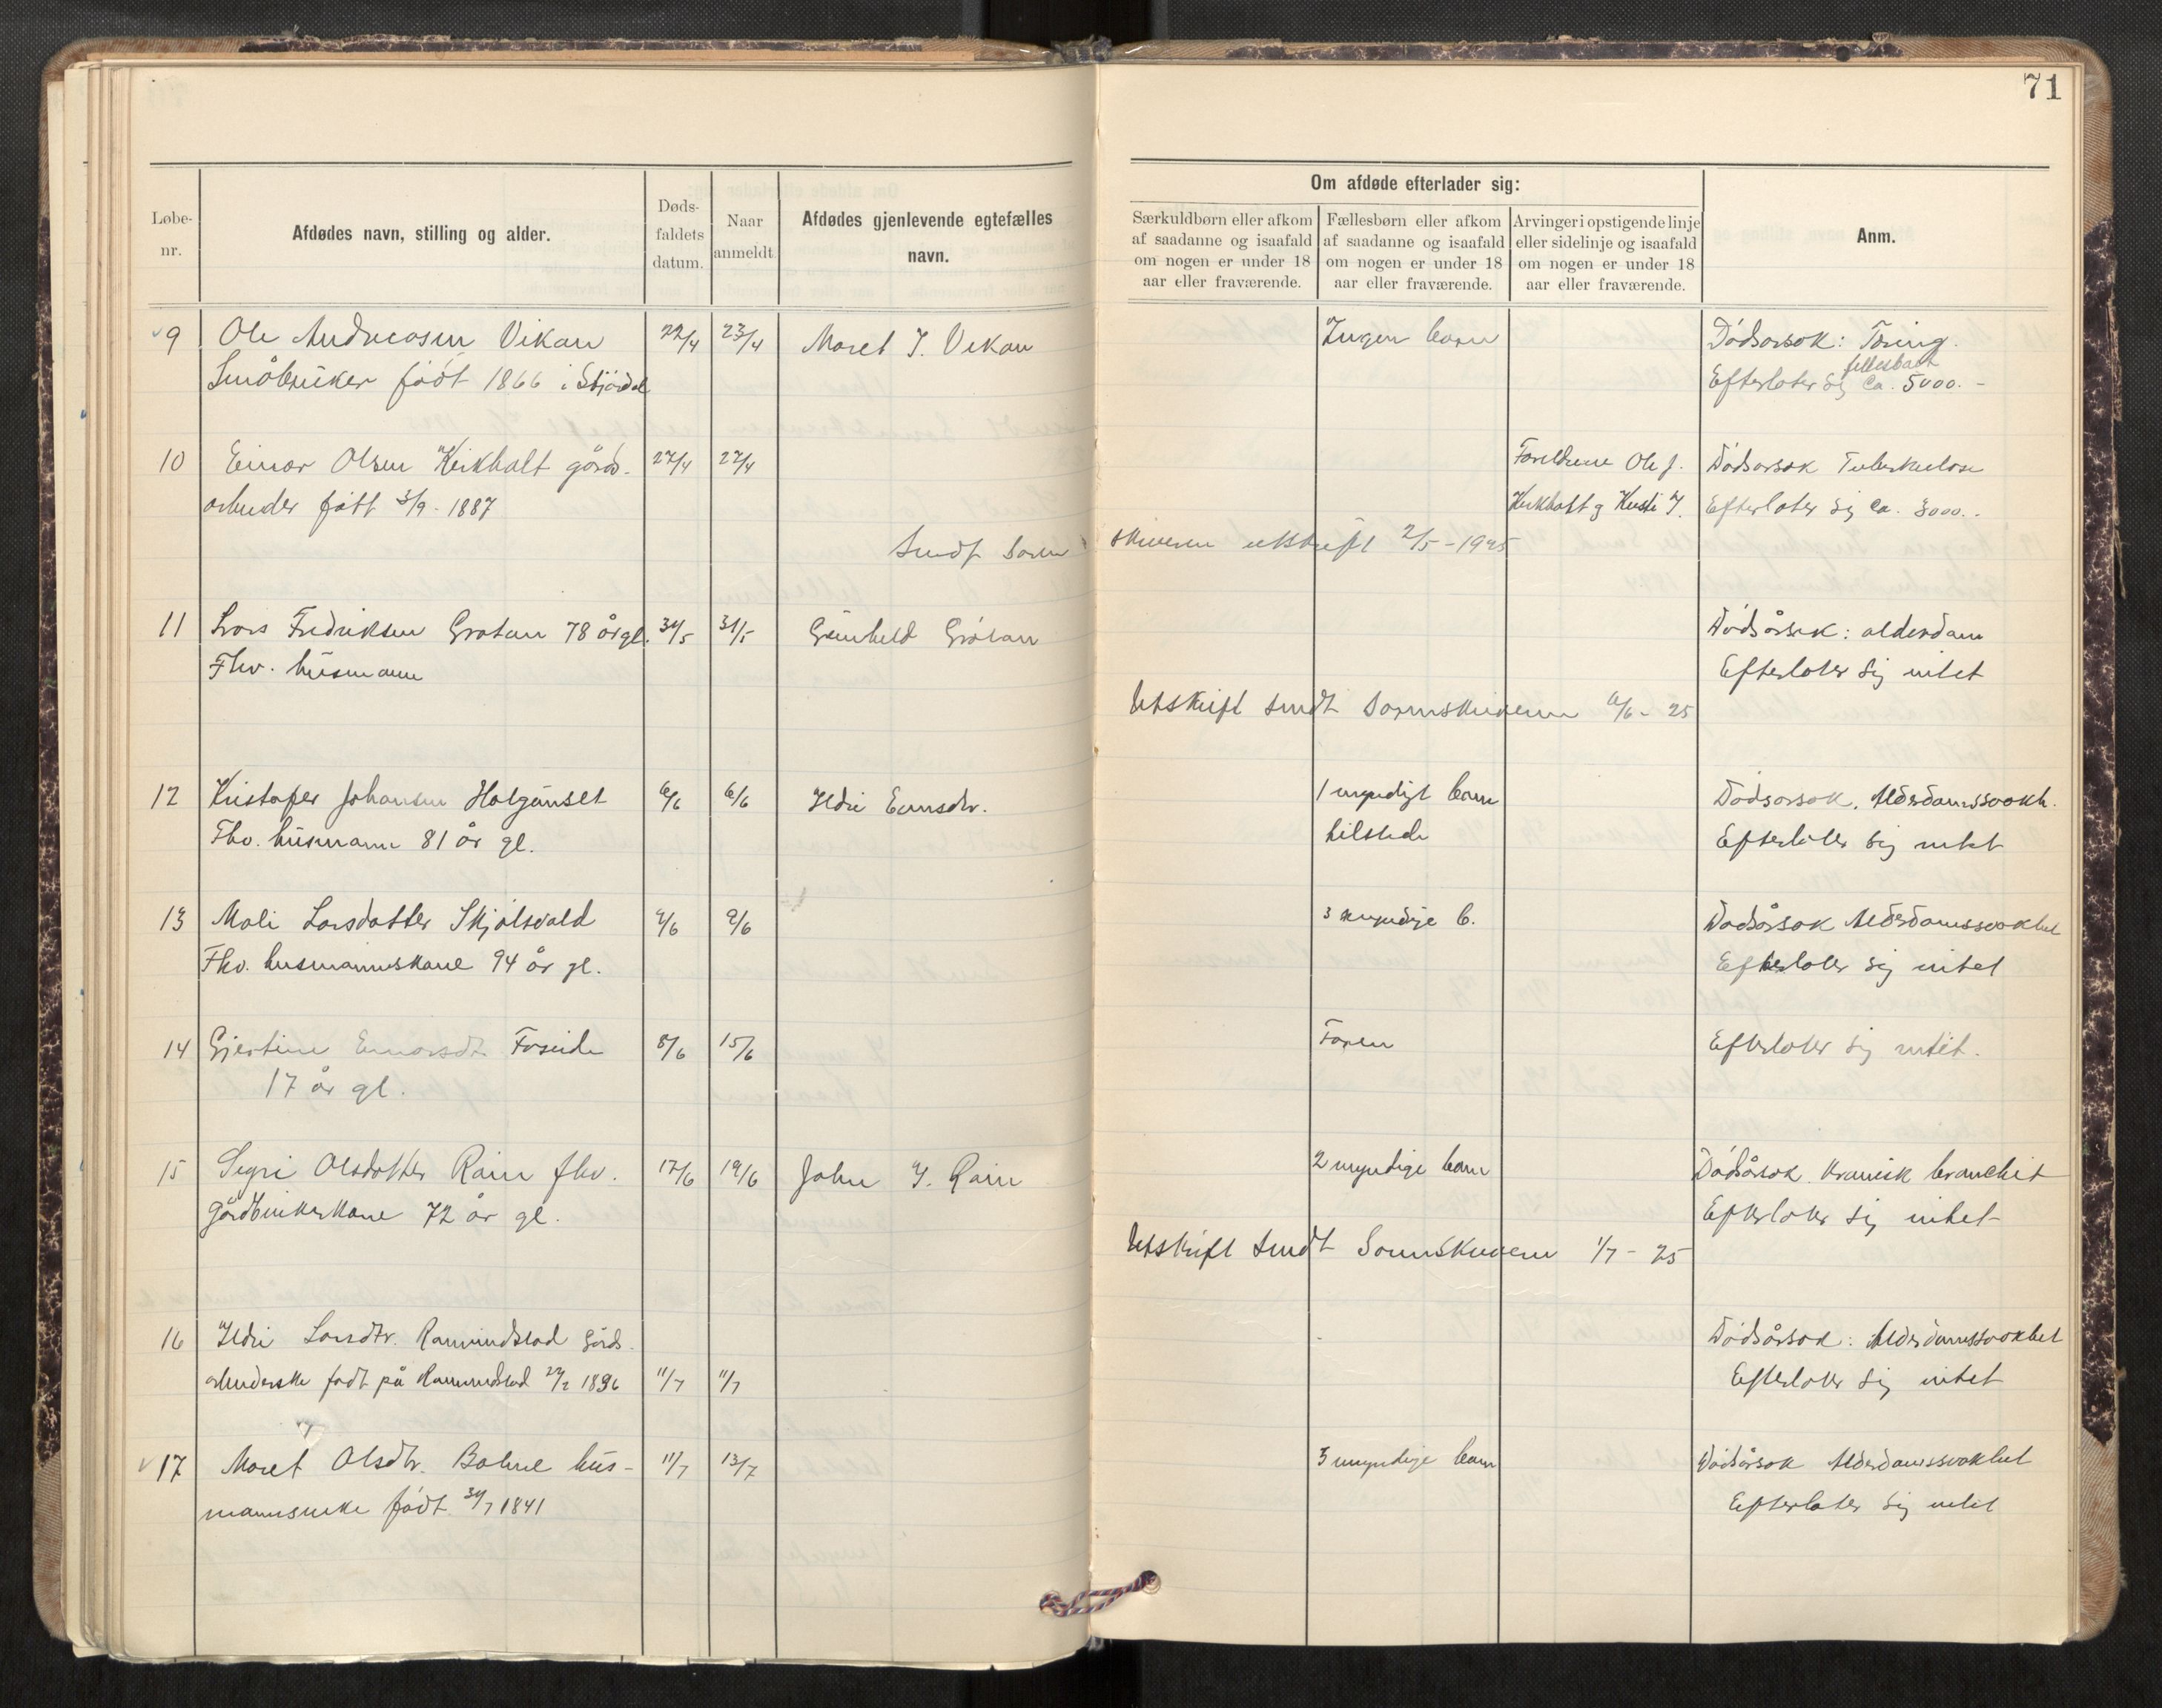 71
Løbe-
nr.
Afdødes navn, stilling og alder.
Døds-
faldets
datum.
Naar
anmeldt.
Afdødes gjenlevende egtefælles
navn.
Om afdøde efterlader sig:
Særkuldbørn eller afkom
af saadanne og isaafald
om nogen er under 18
aar eller fraværende.
Fællesbørn eller afkom
af saadanne og isaafald
om nogen er under 18
aar eller fraværende.
Arvinger i opstigende linje
eller sidelinje og isaafald
om nogen er under 18
aar eller fraværende.
Anm.
9 Ole Andreasen Vikan 22/4 23/4 Maret J. Vikan Ingen barn Dødsårsok: Tæring.
fellesboet
Småbruker født 1866 i Stjørdal Efterlater sig ca. 5000.-
10 Einar Olsen Kirkholt gårds- 27/4 27/4 Foreldrene Ole J. Dødsårsok Tuberkulose
arbeider født 3/9-1887 Kirkholt g Kirsti J. Efterlater sig ca. 3000.-
Sendt Soren skriveren utskrift 2/5-1925
11 Lars Fredriksen Grøtan 78 år gl. 31/5 Gunhild Grøtan Dødsårsok: alderdom
Fhv. husmann Efterlater sig intet
Utskrift sendt Sorenskriveren 6/6-25
12 Kristofer Johansen 6/6 6/6 Ildri 1 myndigt barn Dødsårsok. Alderdomssvakh.
Fhv. husmann 81 år gl. tilstede Efterlater sig intet
13 Mali Larsdatter Skjølsvold 9/6 3 myndige b. Dødsårsok Alderdomssvakhet
Fhv. husmannskone 94 år gl. Efterlater sig intet
14 Gjertine Einarsdt. Foseide 8/6 15/6 Faren Efterlater sig intet.
17 år gl.
15 Sigri Olsdatter Rain fhv. 17/6 19/6 John J. Rain 2 myndige barn Dødsårsok. kronisk bronchit
gårdbrukerkone 72 år gl. Efterlater sig intet
Utskrift sendt Sorenskriveren 1/7-25
16 Ildri Larsdtr. Ramundstad gårds- Dødsårsok: Alderdomssvakhet
arbeiderske født på Ramundstad 11/7 11/7 Efterlater sig intet
17 Maret Olsdtr. hus- 11/7 13/7 myndige barn Dødsårsok Alderdomssvakhet
mannsenke født 1841 Efterlater sig intet